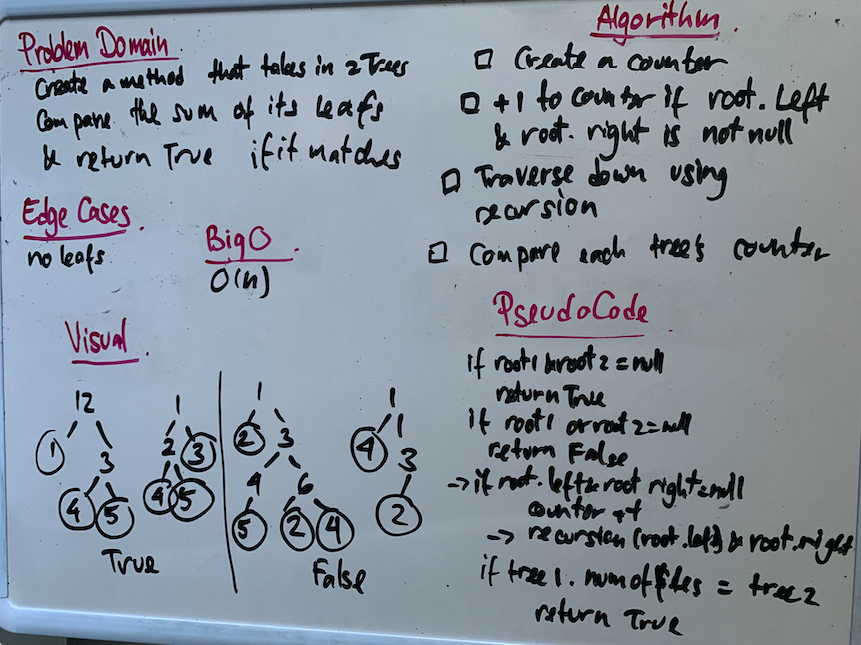 Problem Domain
Create a method that takes in 2 Trees
Compare the sum of its leafs
& return True if it matches
Edge Cases.
no leafs
Big O.
O(n)
Visual.
12
1
3
4 5
1
2 3
4 5
True
1
2 3
4 6
5 2 4
1
4 3
2
False
Algorithm.
□ Create a counter
□ +1 to counter if root.left
& root.right is not null
□ Traverse down using
recursion
□ Compare each tree's counter
PseudoCode
if root1 & root2 = null
return True
if root1 or root2 = null
return False
-> if root.left & root right = null
counter
-> recursion (root.left) & root.right
if tree1. num of = tree2
return True